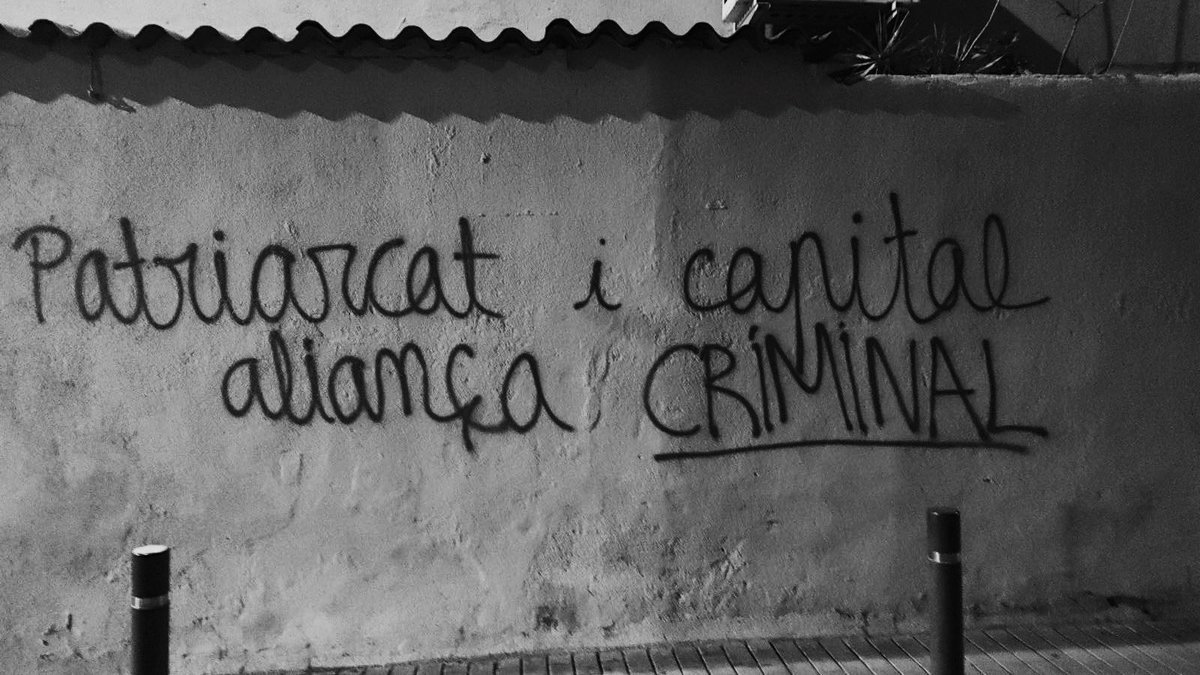 Patriarcat i capital
aliança CRiMiNAL